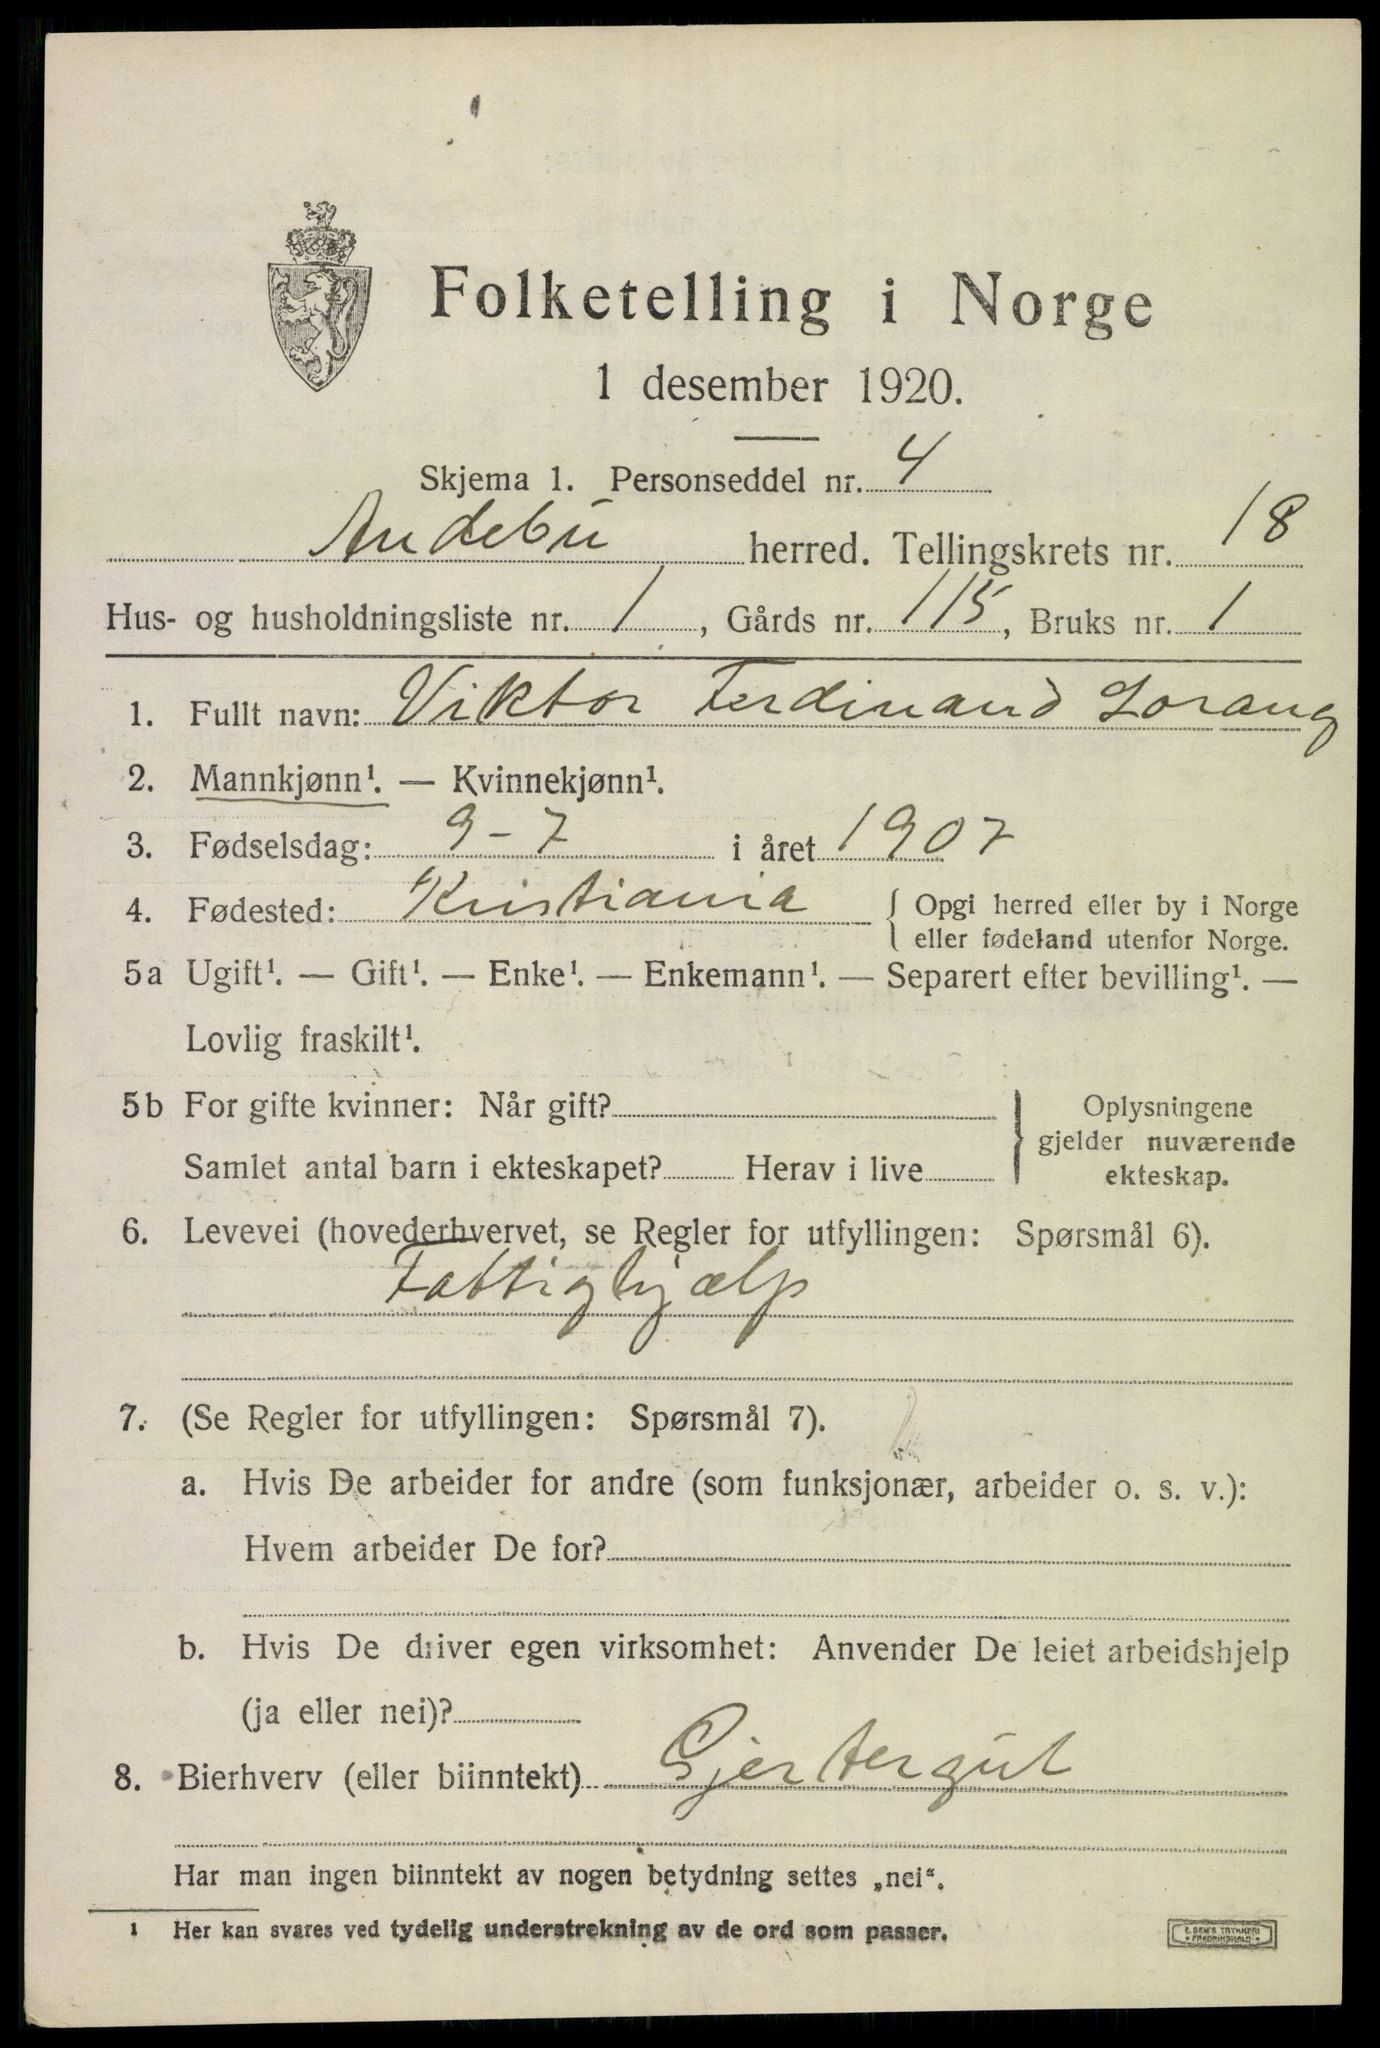 Folketelling i Norge
1 desember 1920.
Skjema 1. Personseddel nr. 4
Andebu herred. Tellingskrets nr. 18
Hus- og husholdningsliste nr. 1, Gårds nr. 115, Bruks nr. 1
1. Fullt navn: Viktor Ferdinand Lorang
2. Mannkjønn¹. — Kvinnekjønn¹.
3. Fødselsdag: 9-7 i året 1907
4. Fødested: Kristiania { Opgi herred eller by i Norge
eller fødeland utenfor Norge.
5a Ugift¹. — Gift¹. — Enke¹. — Enkemann¹. — Separert efter bevilling¹. —
Lovlig fraskilt¹.
5b For gifte kvinner: Når gift? } Oplysningene
gjelder nuværende
Samlet antal barn i ekteskapet? Herav i live
ekteskap.
6. Levevei (hovederhvervet, se Regler for utfyllingen: Spørsmål 6).
Fattighjælp
7. (Se Regler for utfyllingen: Spørsmål 7).
a. Hvis De arbeider for andre (som funksjonær, arbeider o. s. v.):
Hvem arbeider De for?
b. Hvis De driver egen virksomhet: Anvender De leiet arbeidshjelp
(ja eller nei)?
8. Bierhverv (eller biinntekt) Gjetergut
Har man ingen biinntekt av nogen betydning settes „nei".
1 Her kan svares ved tydelig understrekning av de ord som passer.
E. SEM'S TRYKKERI
FREDRIKSHALD